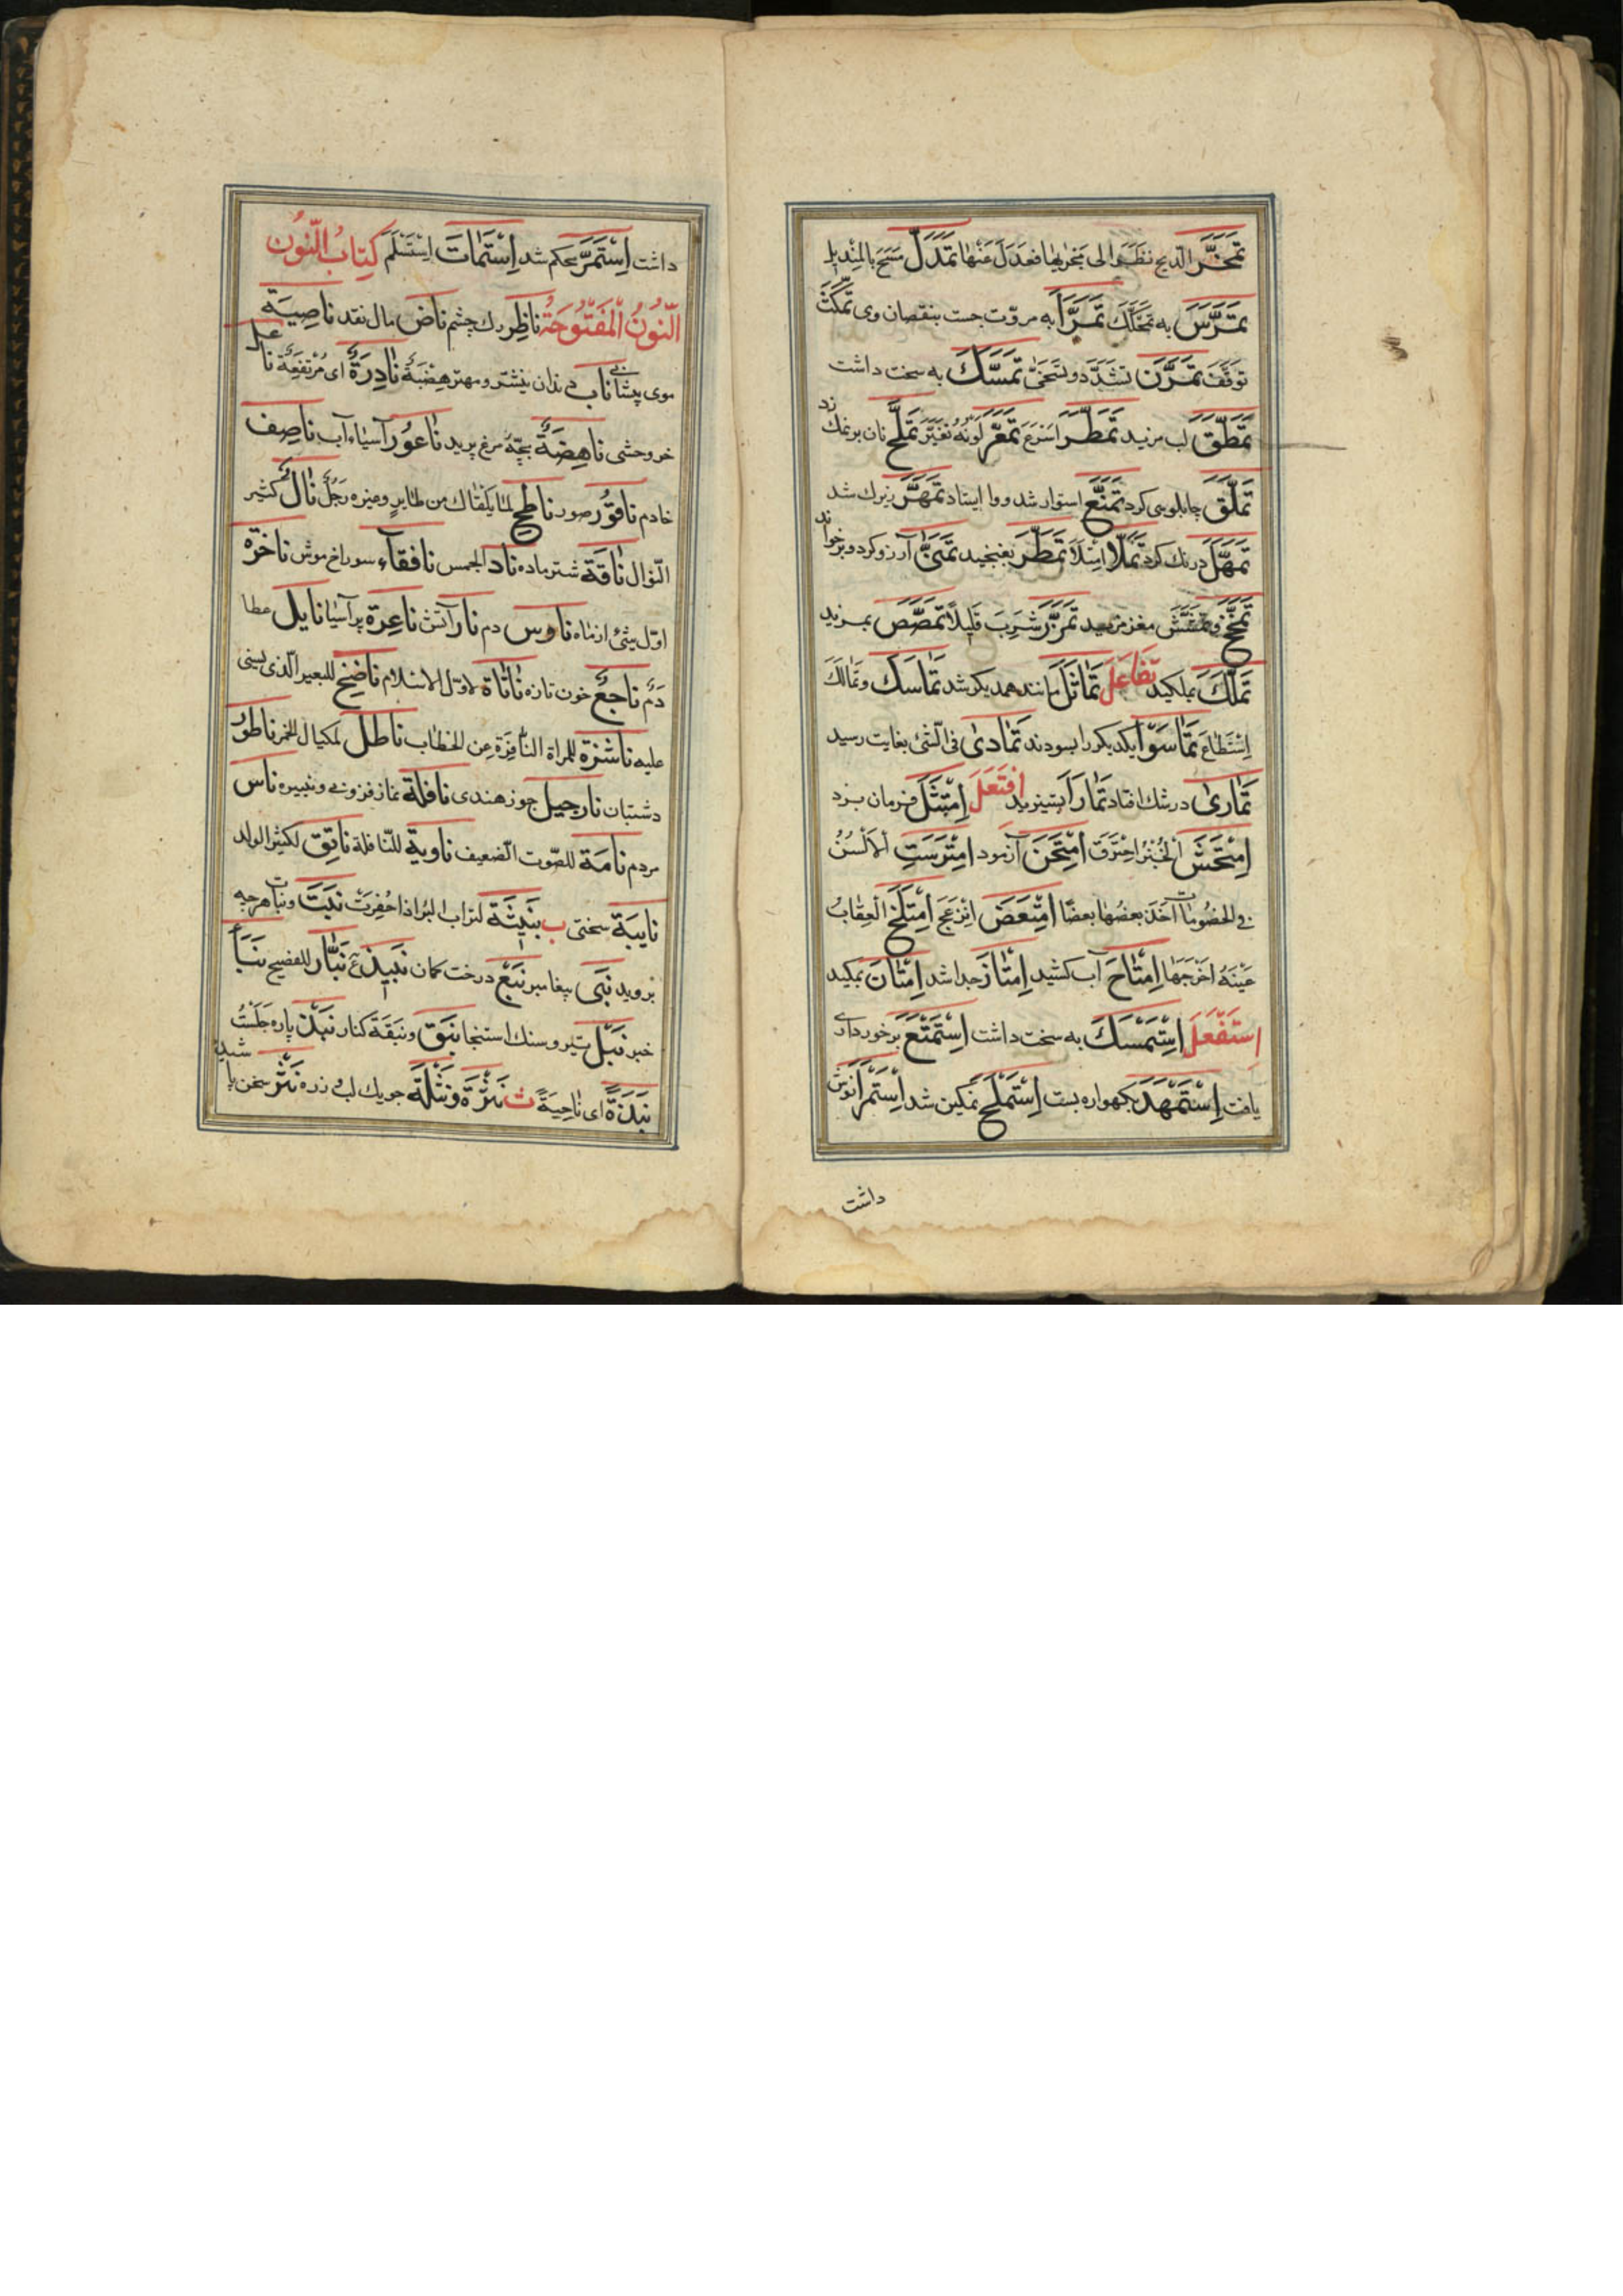 تَمَخَّرَ الرّيح نظر الى مجراها فعدل عنها تَمَدَّلَ مسح بالمنديل
تَمَرَّسَ به تحكّك تَمَرَّأَ به مروّت جست بنقصان وی تَمَكَّثَ
توقّف تَمَرَّنَ تشدّد و تسخّى تَمَسَّكَ به سخت داشت
تَمَطَّقَ لب مزيد تَمَطَّرَ اسرع تَمَعَّرَ لونه تغيّر تَمَلَّحَ نان بر نمك زد
تَمَلَّقَ چاپلوسی كرد تَمَنَّعَ استوار شد و وا ايستاد تَمَهَّرَ زيرك شد
تَمَهَّلَ درنك كرد تَمَلَّأَ امتلأ تَمَنَّى آرزو كرد و برخواند
تَمَخَّخَ مغز تَمَزَّزَ شرب قليلاً تَمَصَّصَ بمزيد
تَمَلَّكَ تفاعل تَمَاثَلَ مانند همديكر شد تَمَاسَكَ وتمالك
استطاع تَمَاسّوا يكديكر را بسودند تَمَادَى فی الشّئ بغايت رسيد
تَمَارَى در شك افتاد افتعل اِمْتَثَلَ فرمان برد
اِمْتَحَشَ الخبز احترق اِمْتَحَنَ آزمود اِمْتَرَسَتِ الالسن
فی الخصومات اخذ بعضها بعضًا اِمْتَعَضَ انزعج اِمْتَلَخَ العقاب
عينه اخرجها اِمْتَاحَ آب كشيد اِمْتَازَ جدا شد بمكيد
استفعل اِسْتَمْسَكَ به سخت داشت اِسْتَمْتَعَ برخورداری
يافت اِسْتَمْهَدَ بكهواره بست اِسْتَمْلَحَ نمكين شد اِسْتَمْرَأَ نوش
داشت
داشت اِسْتَمَرَّ محكم شد اِسْتَمَاتَ استسلم كتاب النّون
النّون المفتوحة ناظر رك چشم ناضّ مال نقد ناصية
موی پيشانی ناب دندان نيشتر و مهتر هضبة نادرة ای مرتفعة
خر وحشی ناهضة بچّهٔ مرغ پريد ناعور آسياء آب ناصف
خادم ناقور صور ناطح لما يلقاك من طاير وغيره رجل نال كثير
النّوال ناقة شتر ماده ناد المجلس نافقآء سوراخ موش ناخرة
اوّل شئ از ماه دم نار آتش ناعرة پر آسيا نايل عطا
دم ناجع خون تازه نأنأة لاوّل الاسلام ناضح للبعير الّذی يسنى
عليه ناشزة للمراة النّافرة عن الخطاب ناطل لمكيال الخمر ناطور
دشتبان نارجيل جوز هندی نافلة نماز فزونی و نبيره ناس
مردم نامة للصّوت الضّعيف ناوية للنّافلة ناتق لكثير الولد
نايبة سختی ب نبيثة لتراب البئر اذا حفرت نبت ونبات هرچه
برويد نبی پيغامبر نبع درخت كمان نبيذ ع نبّار للفصيح نبأ
خبر نبل تير و سنك استنجا نبق ونبقة كنار نبذ پاره جلست
نبذة ای ناحية ث نثرة ونثلة جويك لب و زره نثر سخن